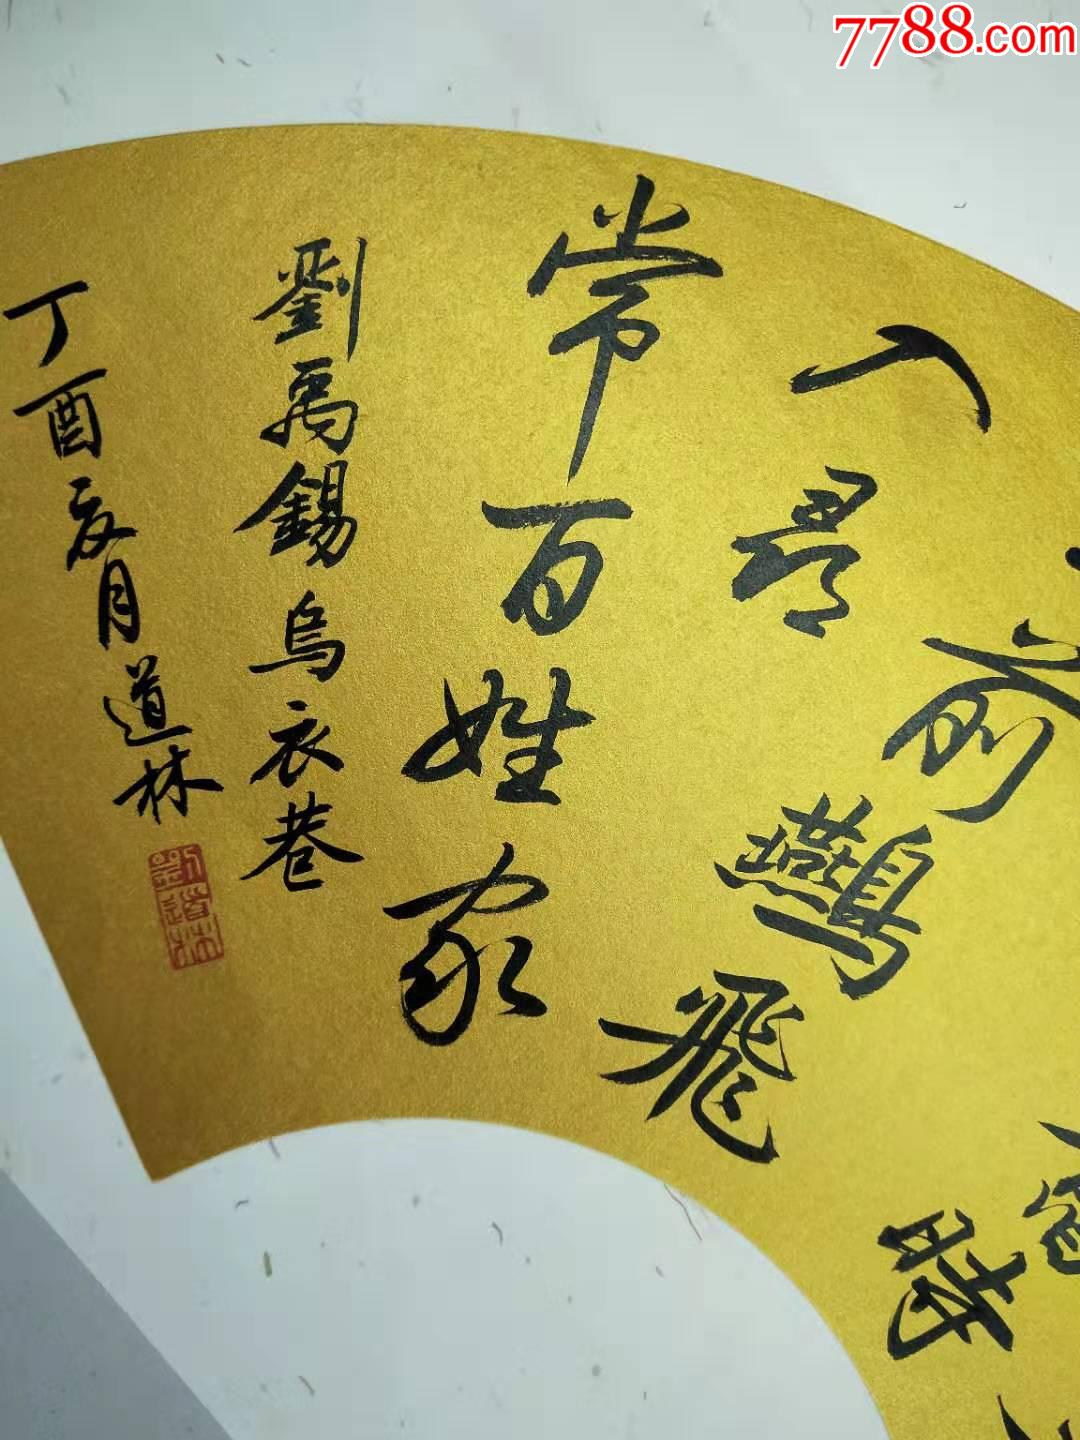 7788.com
前燕飛
時
入尋
常百姓家
劉禹錫烏衣巷
丁酉夏月道林
劉道林